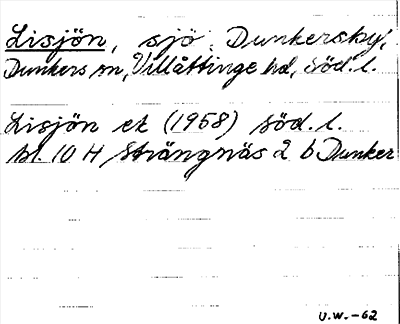 Lisjön, sjö, Dunkersby,
Dunkers sn, Villåttinge hd, Söd. l.
Lisjön ek (1958) Söd. l.
bl. 10 H Strängnäs 2 b Dunker
U.W.-62